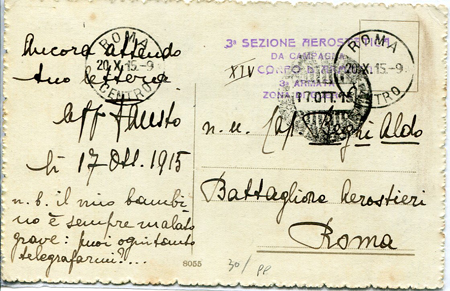 Ancora attendo
tua lettera
aff Fausto
lì 17 Ott. 1915
n. b. il mio bambi
no è sempre malato
grave: puoi ogni tanto
telegrafarmi?....
ROMA
20.X.15.-9
CENTRO
3ª SEZIONE AEROSTATICA
DA CAMPAGNA
XIV CORPO
3ª ARMATA
ZONA
17 OTT. 15
ROMA
20.X.15.-9
CENTRO
n. u. Cap Aldo
Battaglione Aerostieri
Roma
8055
30/